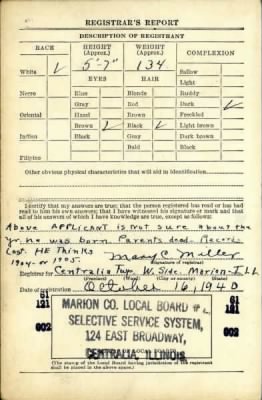 REGISTRAR'S REPORT
DESCRIPTION OF REGISTRANT
RACE HEIGHT (Approx.) WEIGHT (Approx.) COMPLEXION
White ✓ 5'-7" 134 Sallow
EYES HAIR Light
Negro Blue Blonde Ruddy
Gray Red Dark ✓
Oriental Hazel Brown Freckled
Brown ✓ Black ✓ Light brown
Indian Black Gray Dark brown
Bald Black
Filipino
Other obvious physical characteristics that will aid in identification
I certify that my answers are true; that the person registered has read or has had
read to him his own answers; that I have witnessed his signature or mark and that
all of his answers of which I have knowledge are true, except as follows:
Above Applicant is not sure about the
yr. he was born Parents dead. Records
Lost. HE Thinks
1904 or 1905.
Mary C Miller
(Signature of registrar)
Registrar for Centralia Twp W. Side. Marion - Ill
Date of registration October 16, 1940
MARION CO. LOCAL BOARD #
61 61
121 121
SELECTIVE SERVICE SYSTEM,
002 002
124 EAST BROADWAY,
CENTRALIA, ILLINOIS.
(The stamp of the Local Board having jurisdiction of the registrant
shall be placed in the above space.)